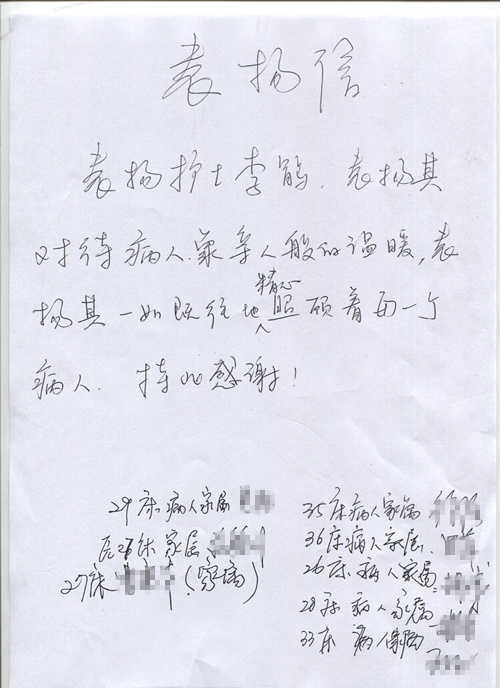 表扬信
表扬护士李鹃.表扬其
对待病人.象亲人般的温暖,表
扬其一如既往地精心照顾着每一个
病人.特此感谢!
29床病人家属
床家属
27床(家属)
35床病人家属
36床病人家属.
26床病人家属
28床病人家属
33床病人家属